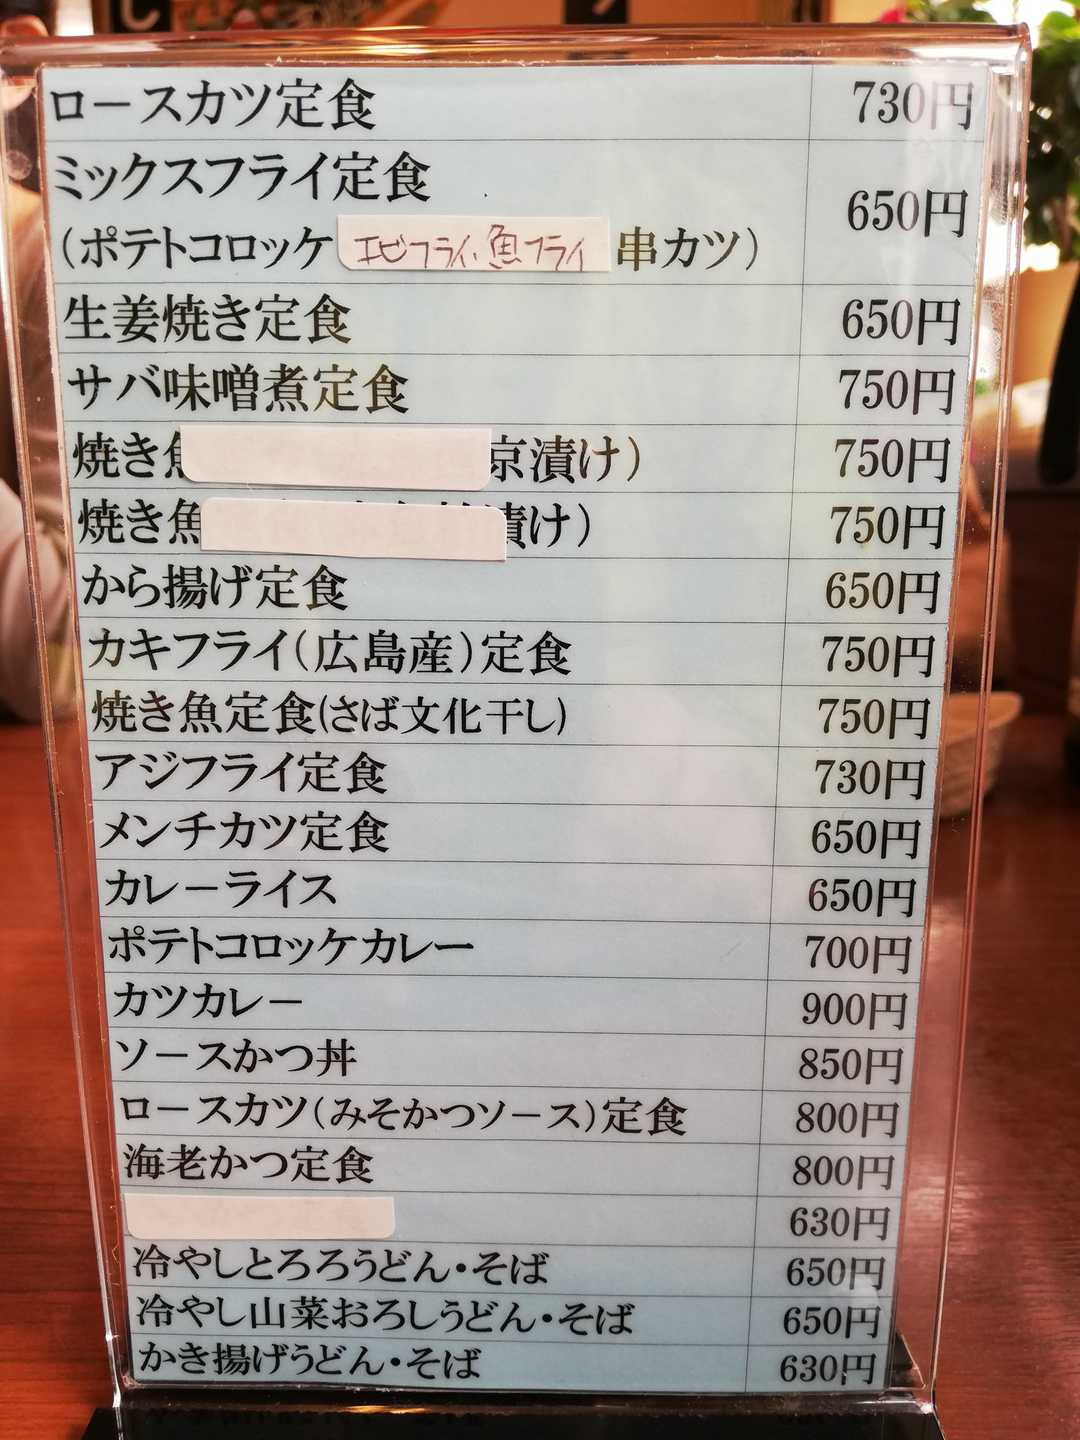 ロースカツ定食 730円
ミックスフライ定食 650円
（ポテトコロッケ エビフライ・魚フライ 串カツ）
生姜焼き定食 650円
サバ味噌煮定食 750円
焼き魚 京漬け） 750円
焼き魚 漬け） 750円
から揚げ定食 650円
カキフライ（広島産）定食 750円
焼き魚定食(さば文化干し) 750円
アジフライ定食 730円
メンチカツ定食 650円
カレーライス 650円
ポテトコロッケカレー 700円
カツカレー 900円
ソースかつ丼 850円
ロースカツ（みそかつソース）定食 800円
海老かつ定食 800円
630円
冷やしとろろうどん・そば 650円
冷やし山菜おろしうどん・そば 650円
かき揚げうどん・そば 630円